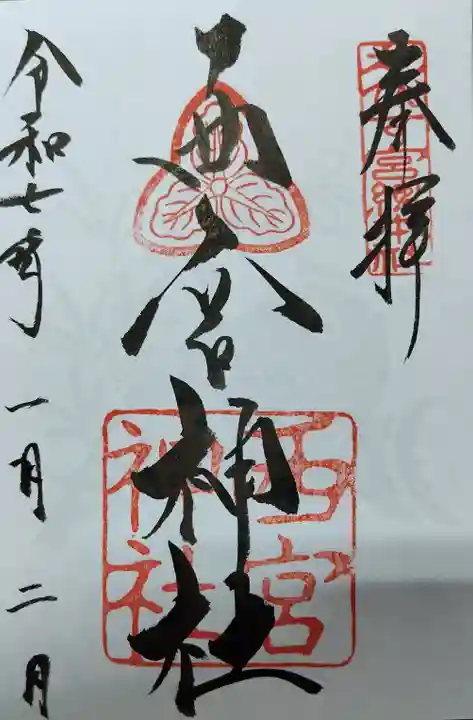 奉拝
西宮神社
西宮
神社
令和七年 一月 二日